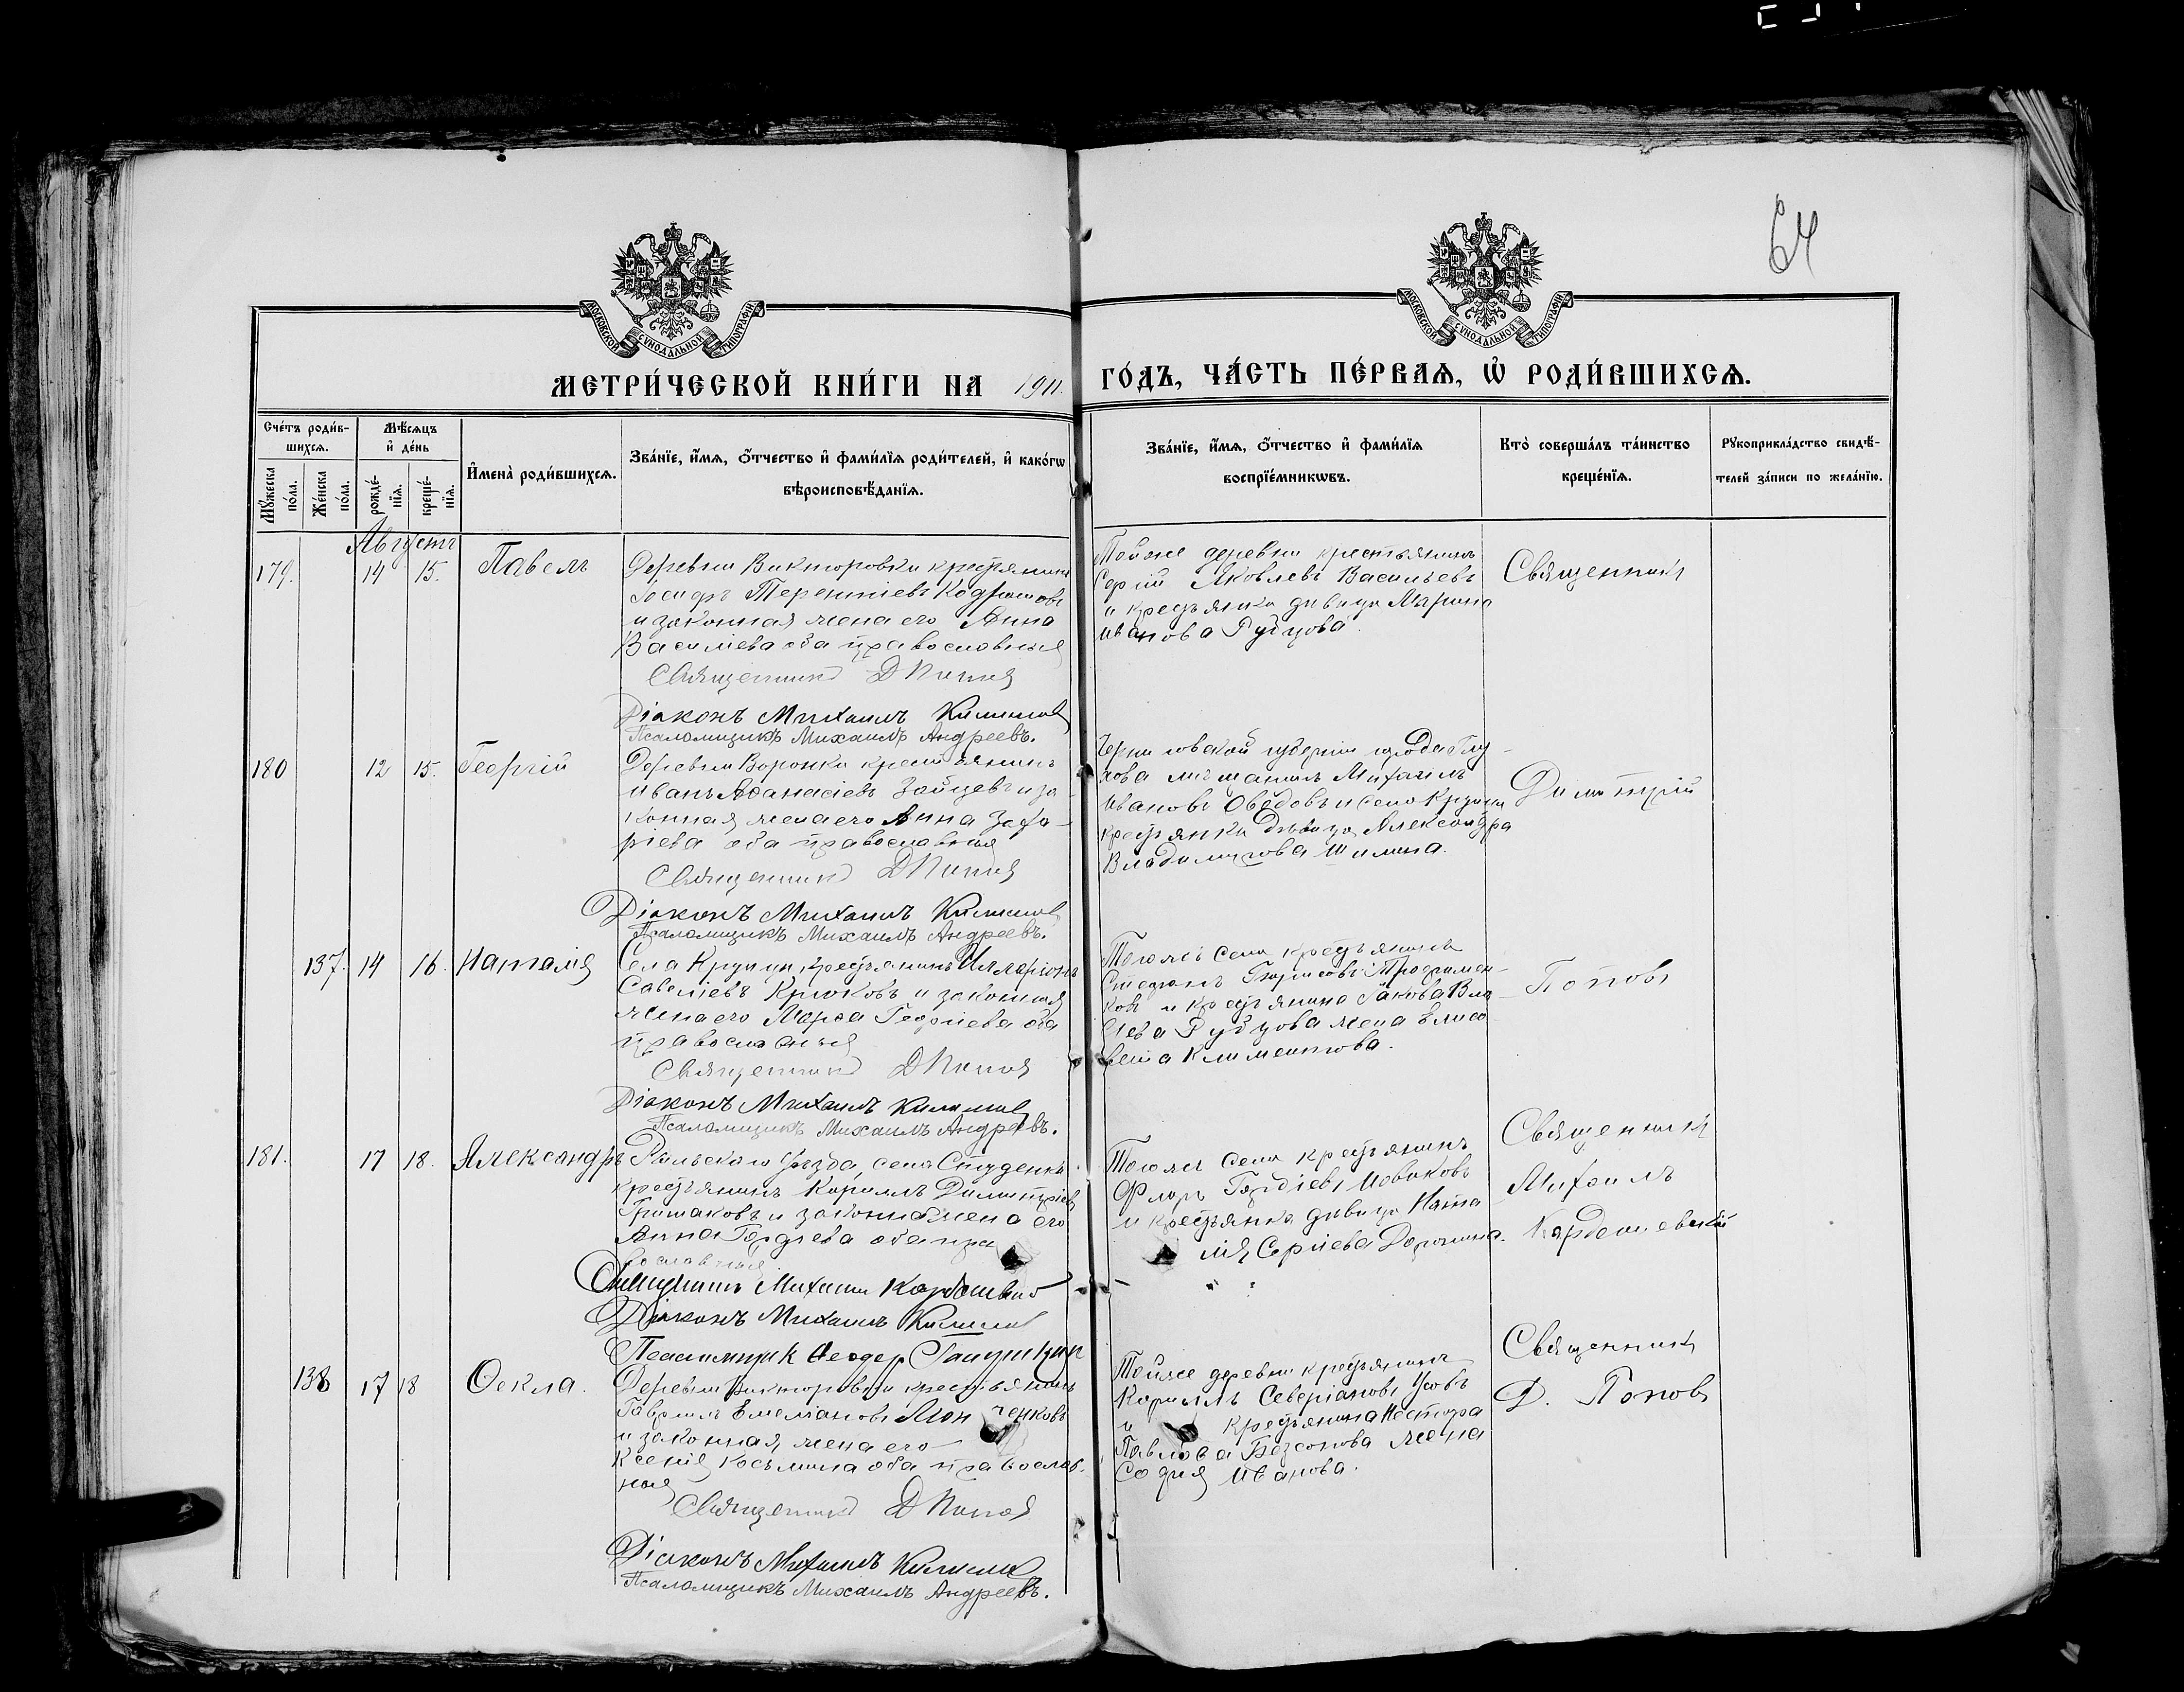 64
МОСКОВСКОЙ СѴНОДАЛЬНОЙ ТИПОГРАФІИ
МОСКОВСКОЙ СѴНОДАЛЬНОЙ ТИПОГРАФІИ
МЕТРИ́ЧЕСКОЙ КНИ́ГИ НА 1911. ГО́ДЪ, ЧА́СТЬ ПЕ́РВАѦ, Ѡ҆ РОДИ́ВШИХСѦ.
Сче́тъ роди́в-
шихсѧ.
Мꙋ́жеска по́ла.
Же́нска по́ла.
Мѣ́сѧцъ
и҆ де́нь
рожде́-
нїѧ.
креще́-
нїѧ.
И҆мена̀ роди́вшихсѧ.
Зва́нїе, и҆́мѧ, ѻ҆́тчество и҆ фами́лїѧ роди́телей, и҆ како́гѡ
вѣроисповѣ́данїѧ.
Зва́нїе, и҆́мѧ, ѻ҆́тчество и҆ фами́лїѧ
воспрїе́мникѡвъ.
Кто̀ соверша́лъ та́инство
креще́нїѧ.
Рꙋкоприкла́дство свидѣ́-
телей за́писи по жела́нїю.
Августъ
179. 14 15. Павелъ
Деревни Викторовки крестьянинъ
Іосифъ Терентіевъ
и законная жена его Анна
Василіева оба православные
Священникъ Д Поповъ
Діаконъ Михаилъ
Псаломщикъ Михаилъ Андреевъ.
Тойже деревни крестьянинъ
Сергій Яковлевъ Васильевъ
и крестьянка дѣвица Марина
Иванова Рубцова
Священникъ
180 12 15. Георгій
Деревни Воронки крестьянинъ
Иванъ Аѳанасіевъ Зайцевъ и за
конная жена его Анна Заха-
ріева оба православные
Священникъ Д Поповъ
Діаконъ Михаилъ
Псаломщикъ Михаилъ Андреевъ.
Черниговской губерніи города Глу-
хова мѣщанинъ Михаилъ
Ивановъ и села Крупца
крестьянка дѣвица Александра
Владимірова Шилина.
Димитрій
137. 14 16. Наталія
Села Крупца крестьянинъ Илларіонъ
Савеліевъ Крюковъ и законная
жена его Марѳа Георгіева оба
православные
Священникъ Д Поповъ
Діаконъ Михаилъ
Псаломщикъ Михаилъ Андреевъ.
Тогоже села крестьянинъ
Стефанъ Борисовъ Трофимен-
ковъ и крестьянина Іакова Вла
сіева Рубцова жена Елиса
вета Климентова.
Поповъ
181. 17 18. Александръ
Рыльскаго уѣзда, села Студенка
крестьянинъ Кириллъ Димитріевъ
Гришаковъ и законная жена его
Анна Гордіева оба пра
вославные
Священникъ Михаилъ
Діаконъ Михаилъ
Псаломщикъ Ѳеодоръ
Тогоже села крестьянинъ
Флоръ Гордіевъ Новиковъ
и крестьянка дѣвица Ната
лія Сергіева
Священникъ
Михаилъ
138 17 18 Ѳекла.
Деревни Викторовки крестьянинъ
Гавріилъ Емеліановъ
и законная жена его
Ксенія Косьмина оба православ-
ные
Священникъ Д Поповъ
Діаконъ Михаилъ
Псаломщикъ Михаилъ Андреевъ.
Тойже деревни крестьянинъ
Кириллъ Северіановъ Усовъ
и крестьянина Нестора
Павлова Безсонова жена
Софія Иванова.
Священникъ
Д. Поповъ